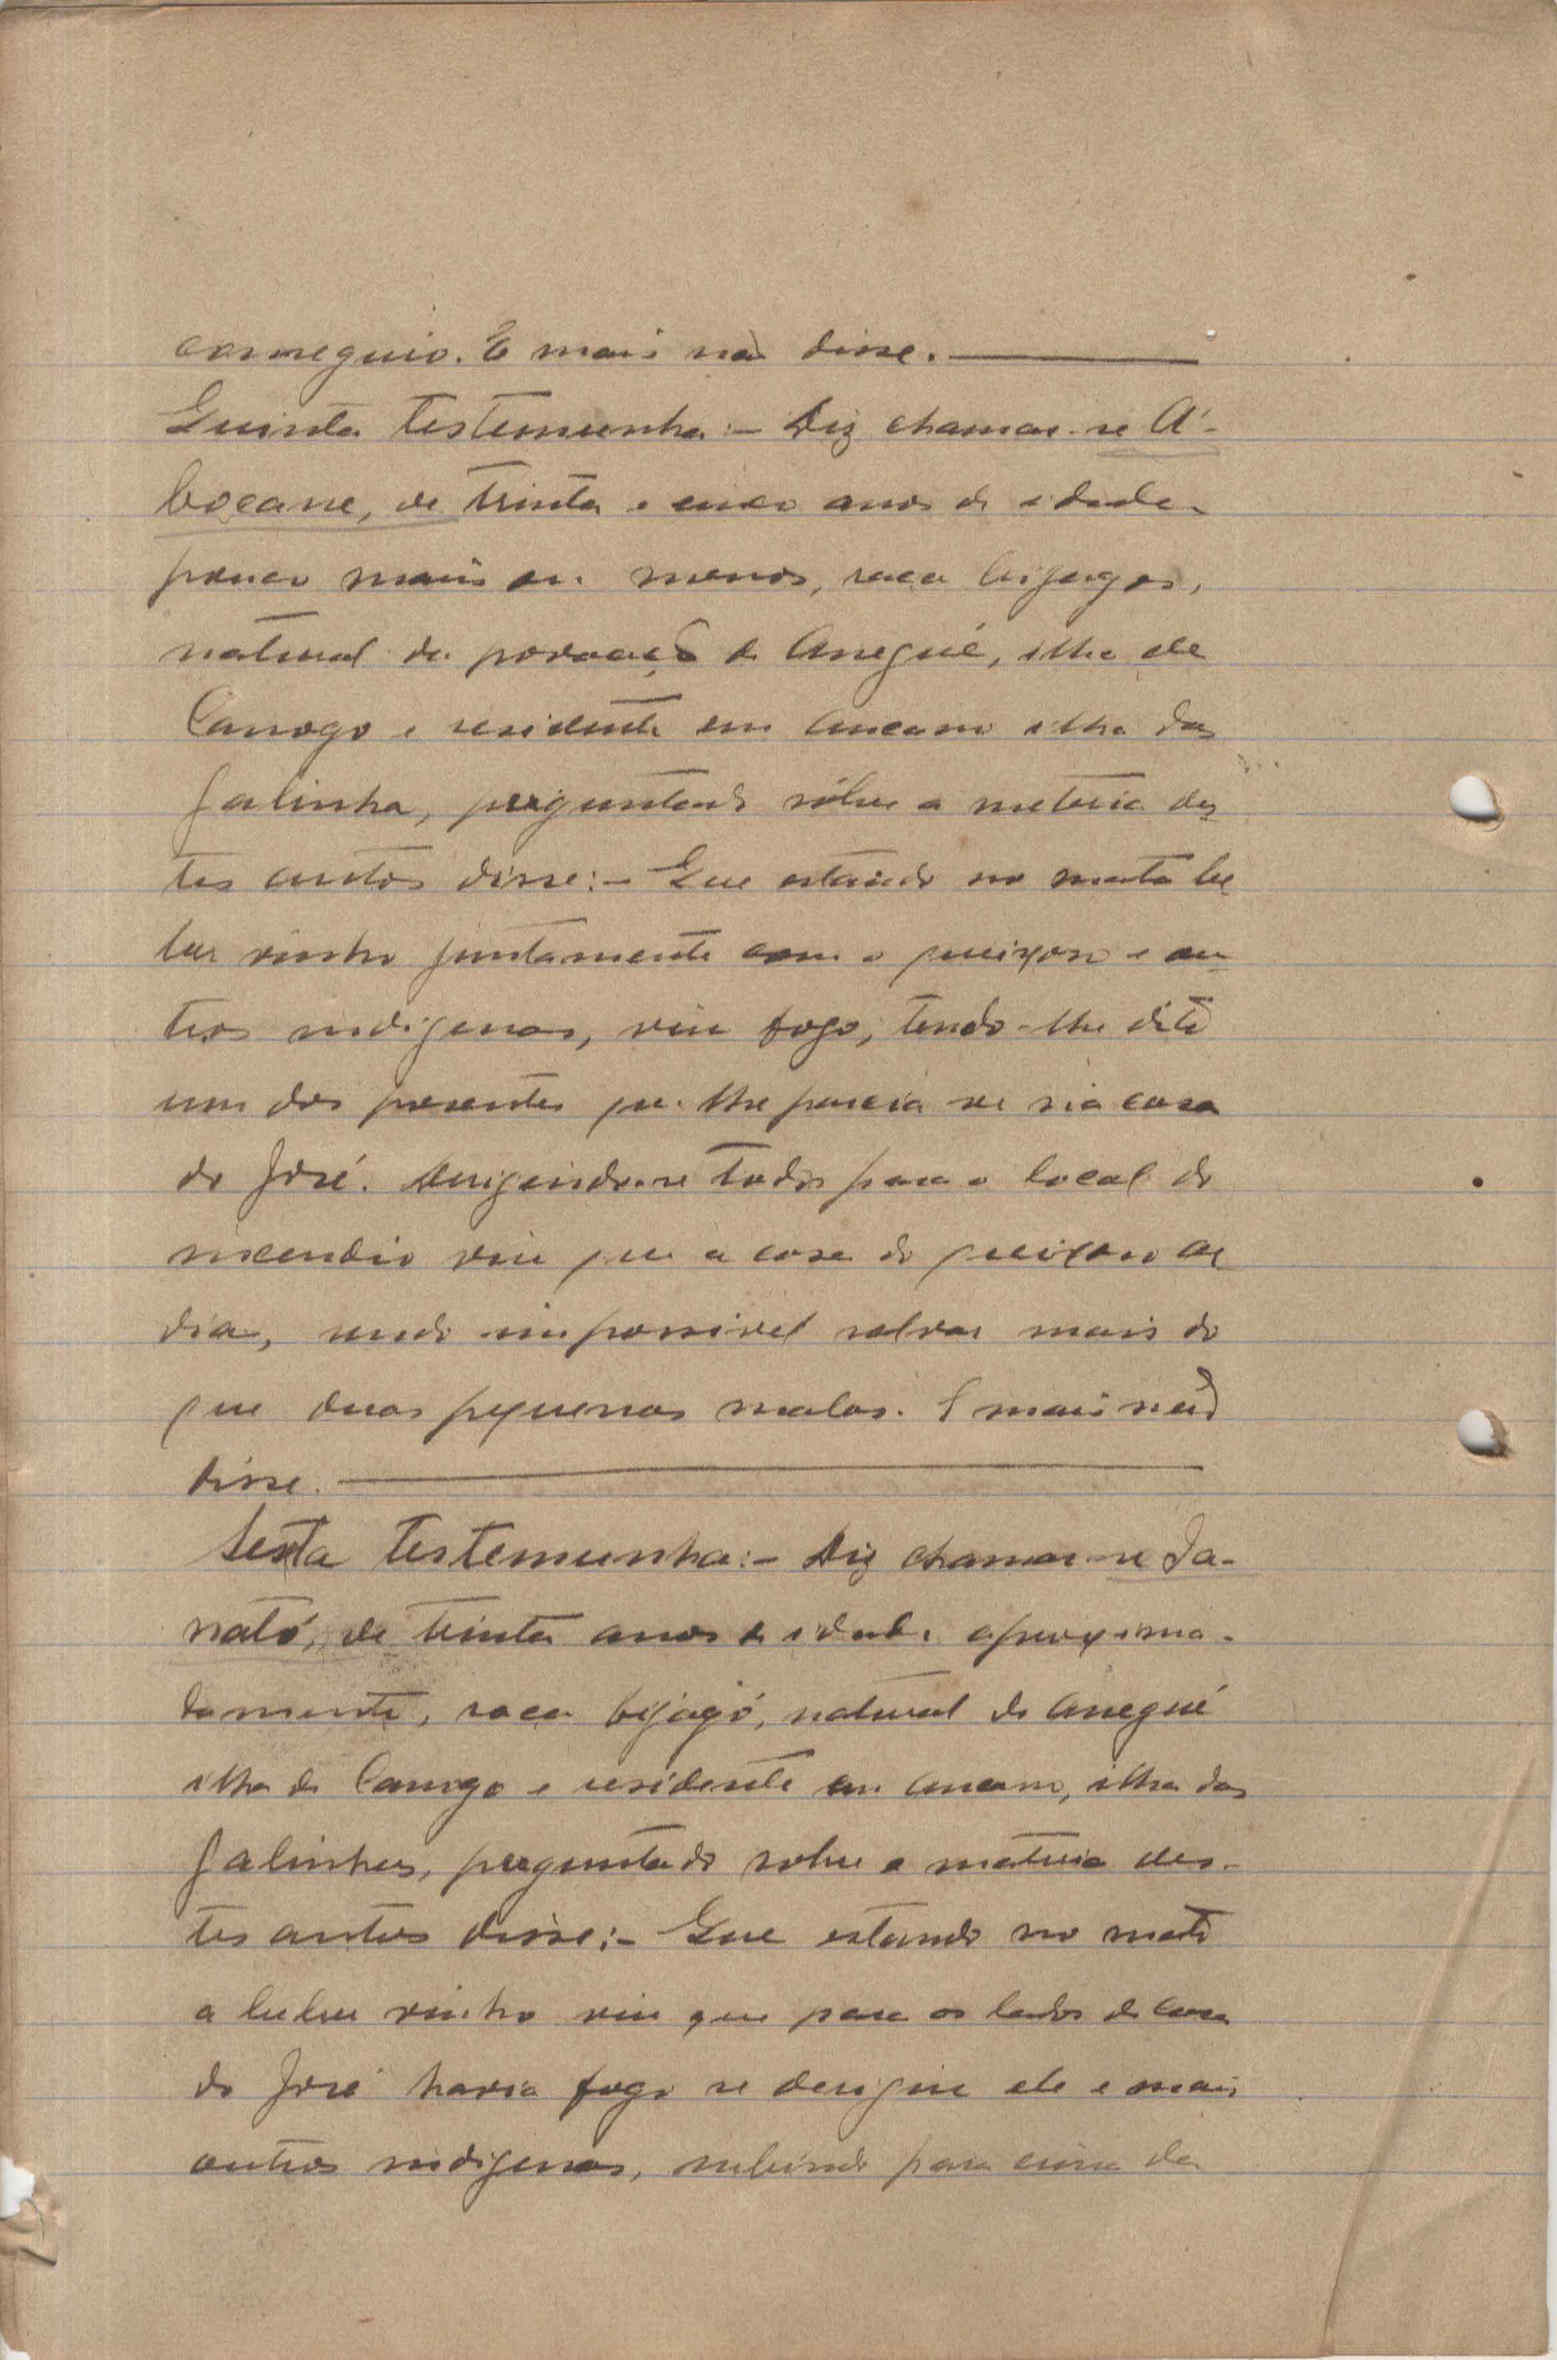 conseguio. E mais não disse.
Quinta testemunha:- Diz chamar-se A-
bocane, de trinta e cinco anos de idade
pouco mais ou menos, raça bijagos,
natural da povoação de Aneguê, ilha de
Canogo e residente em Ancano ilha das
Galinha, perguntado sôbre a materia des
tes autos disse:- Que estando no mato be
ber vinho juntamente com o queixoso e ou
tros indigenas, viu fogo, tendo-lhe dito
um dos presentes que lhe parecia ser na casa
do José. Derigindo-se todos para o local do
incendio viu que a casa do queixoso ar
dia, sendo impossivel salvar mais do
que duas pequenas malas. E mais não
disse.
Sexta testemunha:- Diz chamar-se Ja-
nató, de trinta anos de idade aproxima-
damente, raça bijagó, natural de Anegué
ilha de Canogo e residente em Ancano, ilha das
Galinhas, perguntado sobre a materia des-
tes autos disse:- Que estando no mato
a beber vinho viu que para os lados da casa
do José havia fogo se derigiu ele e mais
outros indigenas, subindo para cima da